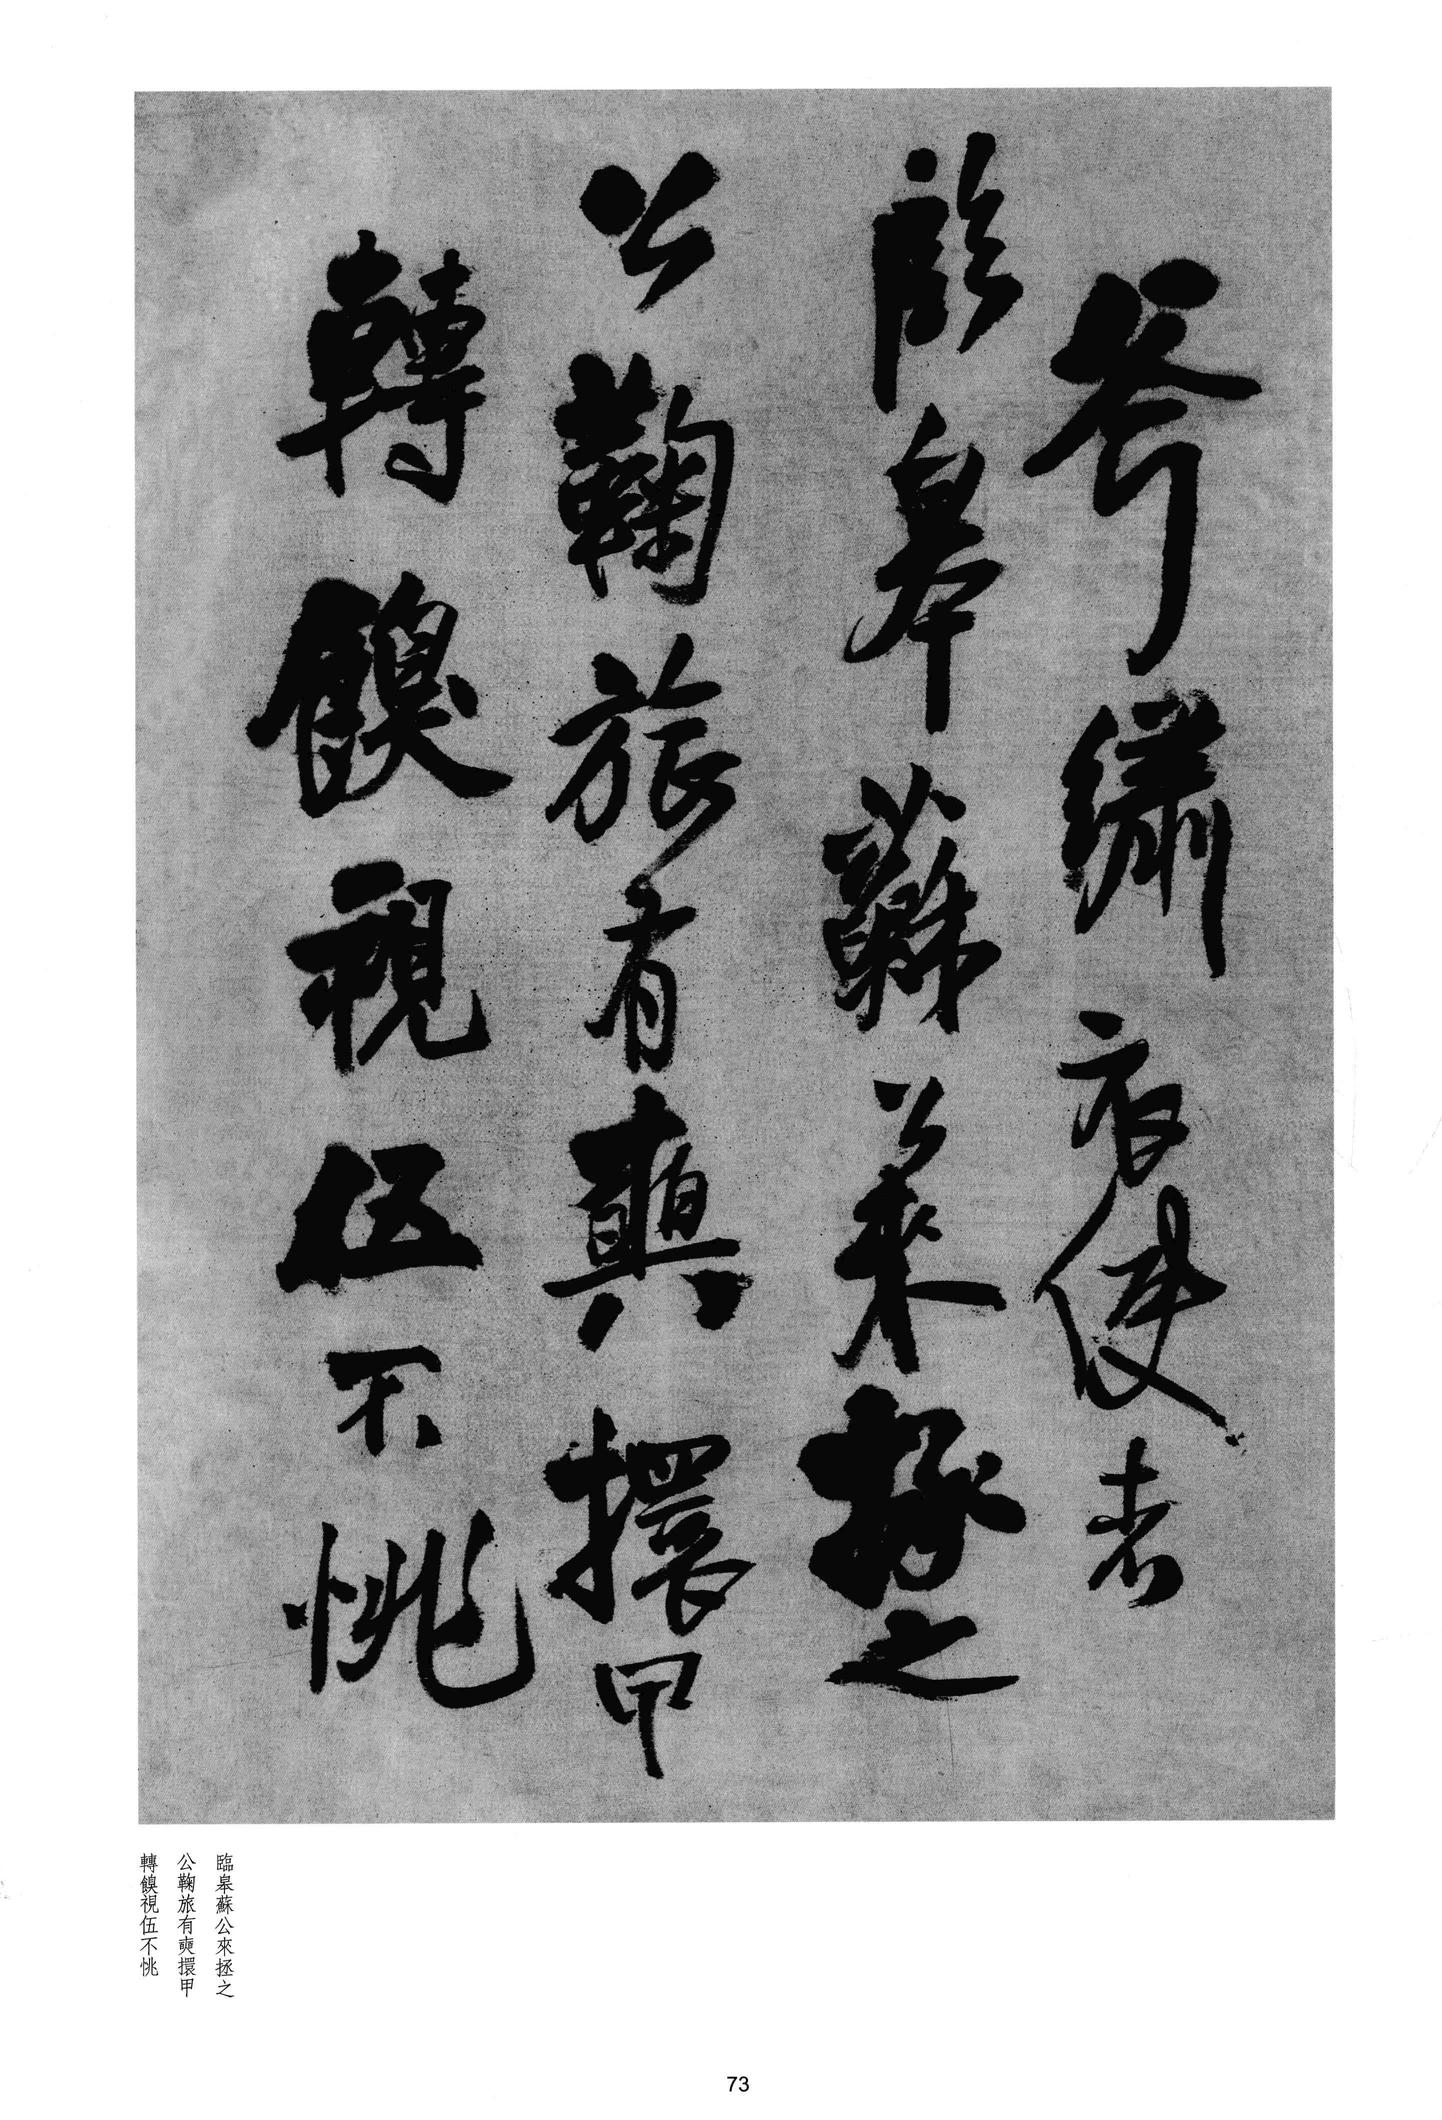 斧繡衣使者
臨皋蘇公來拯之
公鞠旅有奭擐甲
轉餽視伍不恌
臨皋蘇公來拯之
公鞠旅有奭擐甲
轉餽視伍不恌
73